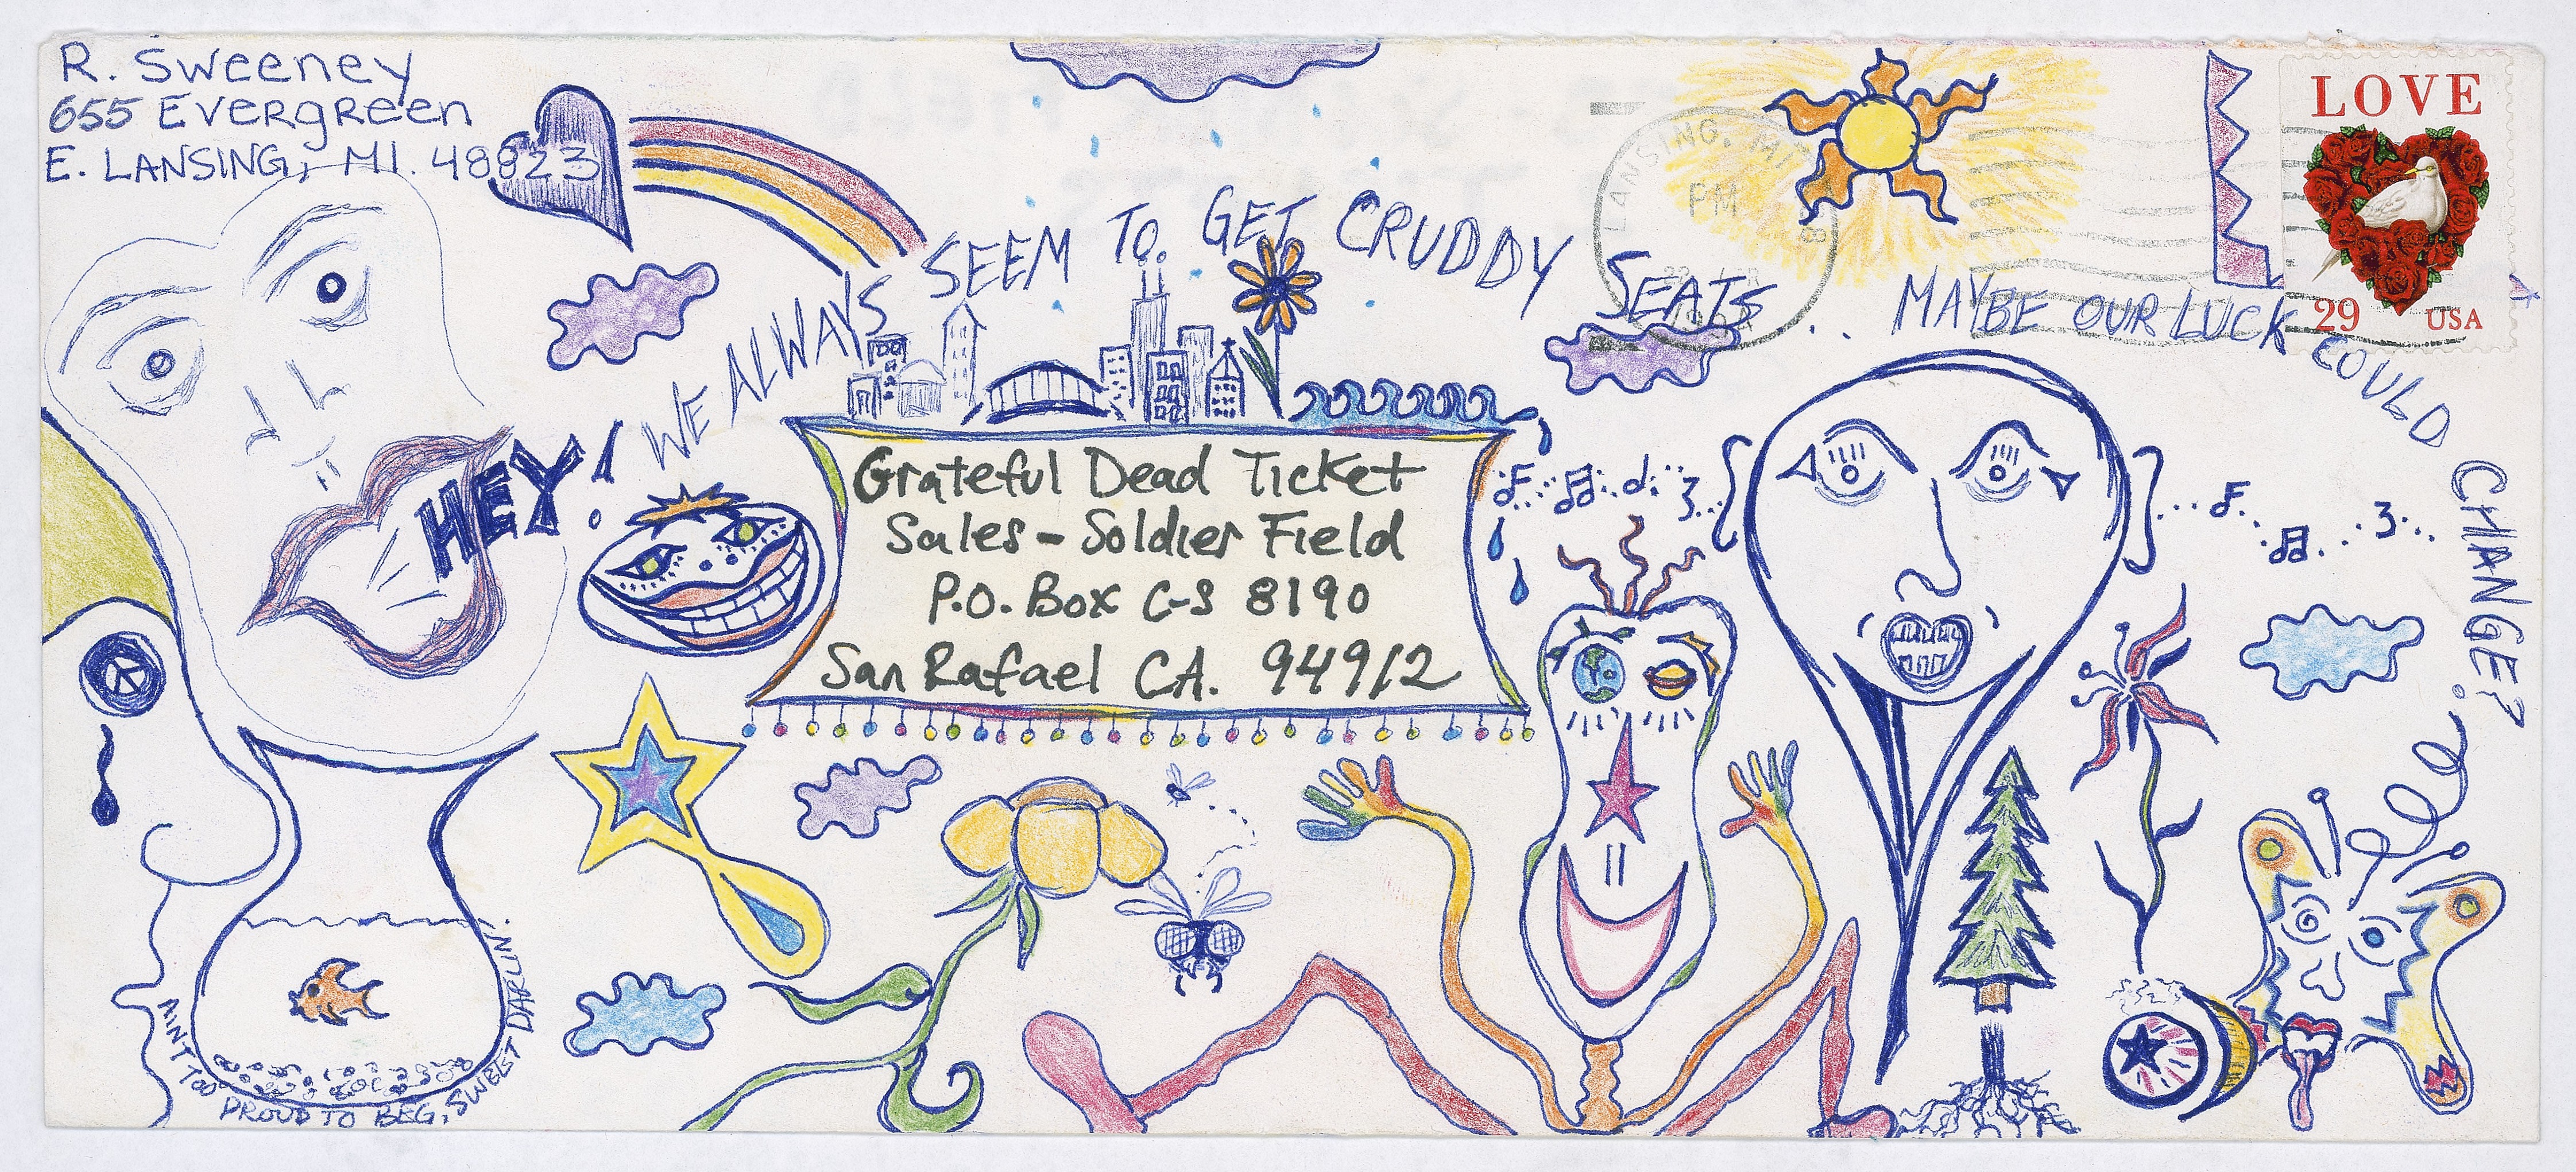 R. Sweeney
655 Evergreen
E. LANSING, MI. 48823
LANSING, MI
PM
LOVE
29 USA
HEY! WE ALWAYS SEEM TO GET CRUDDY SEATS... MAYBE OUR LUCK COULD CHANGE?
Grateful Dead Ticket
Sales - Soldier Field
P.O. Box C-S 8190
San Rafael CA. 94912
AINT TOO PROUD TO BEG, SWEET DARLIN'.